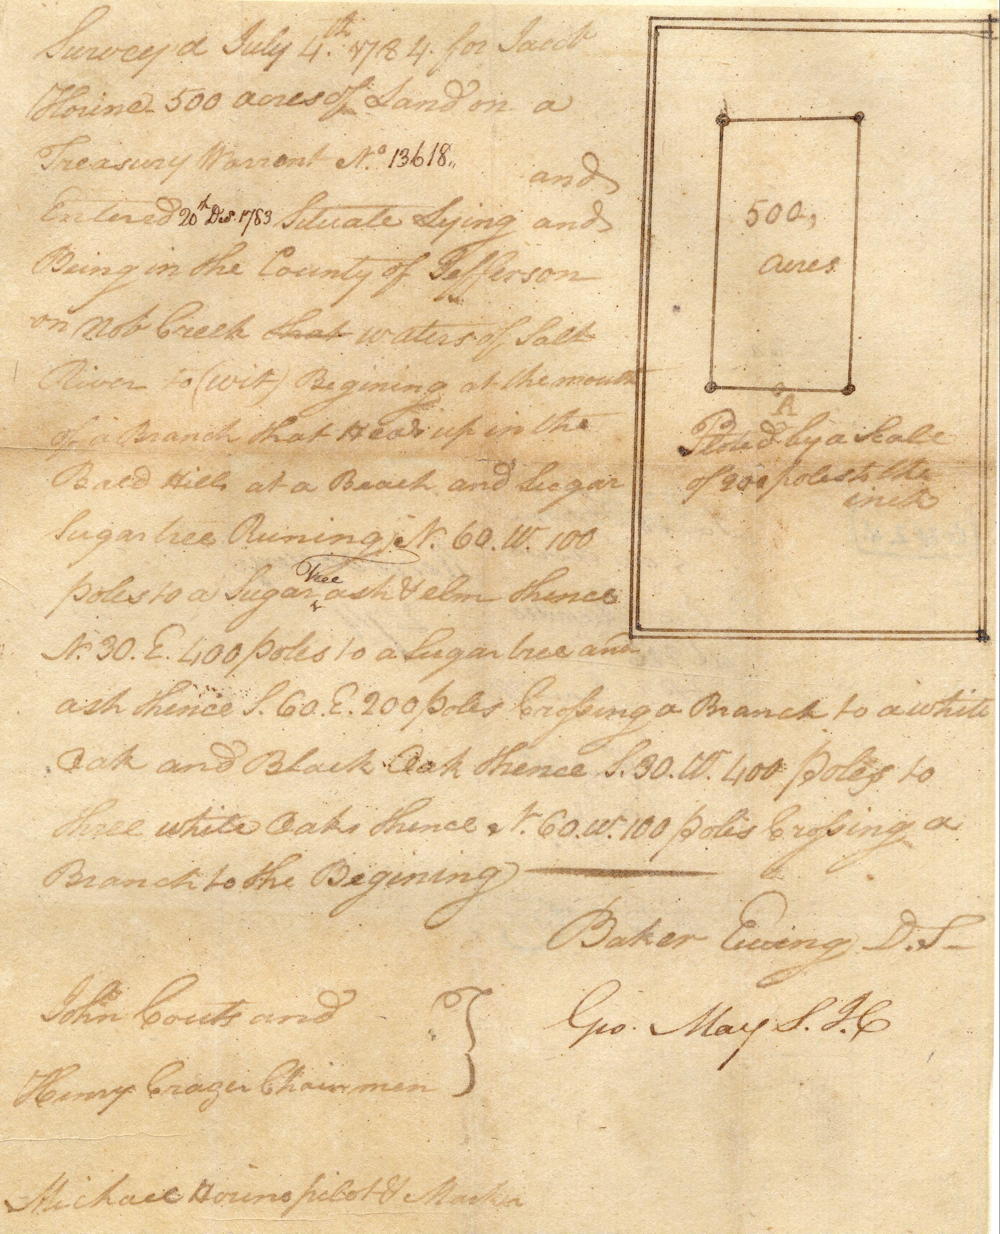 Survey'd July 4th 1784. for Jacob
Hoine 500 acres of Land on a
Treasury Warrant No. 13618.
and
Entered 20th Des. 1783 Situate Lying and
Being in the County of Jefferson
on Nob Creek that waters of Salt
River to (wit) Begining at the mouth
of a Branch that Heads up in the
Bald Hills at a Beach and Sugar
Sugar tree Runing N. 60. W. 100
poles to a Sugar tree ash & elm thence
N. 30. E. 400 poles to a Sugar tree and
ash thence S. 60. E. 200 poles Crossing a Branch to a white
Oak and Black Oak thence S. 30. W. 400 poles to
three white Oaks thence N. 60. W. 100 poles Crossing a
Branch to the Begining
Baker Ewing D. S.
John Couts and
Geo. May S. J. C
Henry Crager Chainmen
Michael Hoine pilot & Marker
500,
acres
A
Ploted by a Scale
of 200 poles to the
inch